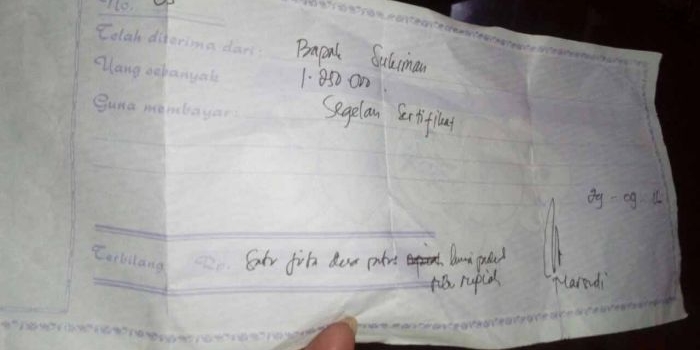 No.
Telah diterima dari: Bapak Suleiman
Uang sebanyak 1.250.000.
Guna membayar: Segelan Sertifikat
29 - 09 -
Terbilang Rp. Satu juta dua ratus lima puluh
ribu rupiah
Marsudi